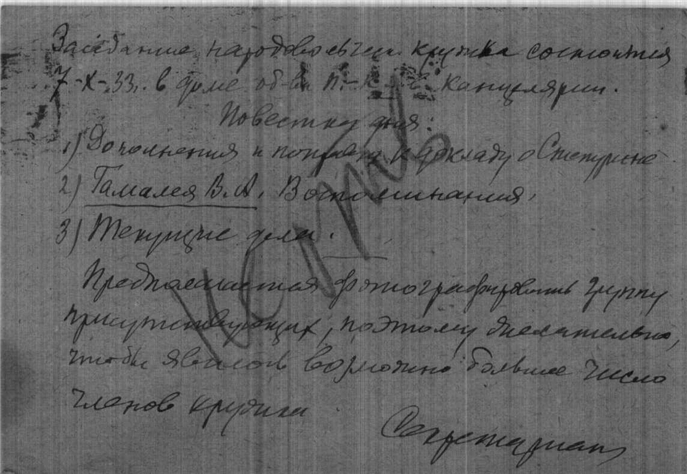 Заседание народовольческ. кружка состоится
7-X-33г. в доме об-ва п.-к. Канцелярии.
Повестка дня:
1) Дополнения и поправки к докладу о
2) Гамалея В.А. Воспоминания.
3) Текущие дела.
Предполагается фотографировать группу
присутствующих, поэтому желательно,
чтобы явилось возможно больше число
членов кружка
Секретариат
Копия